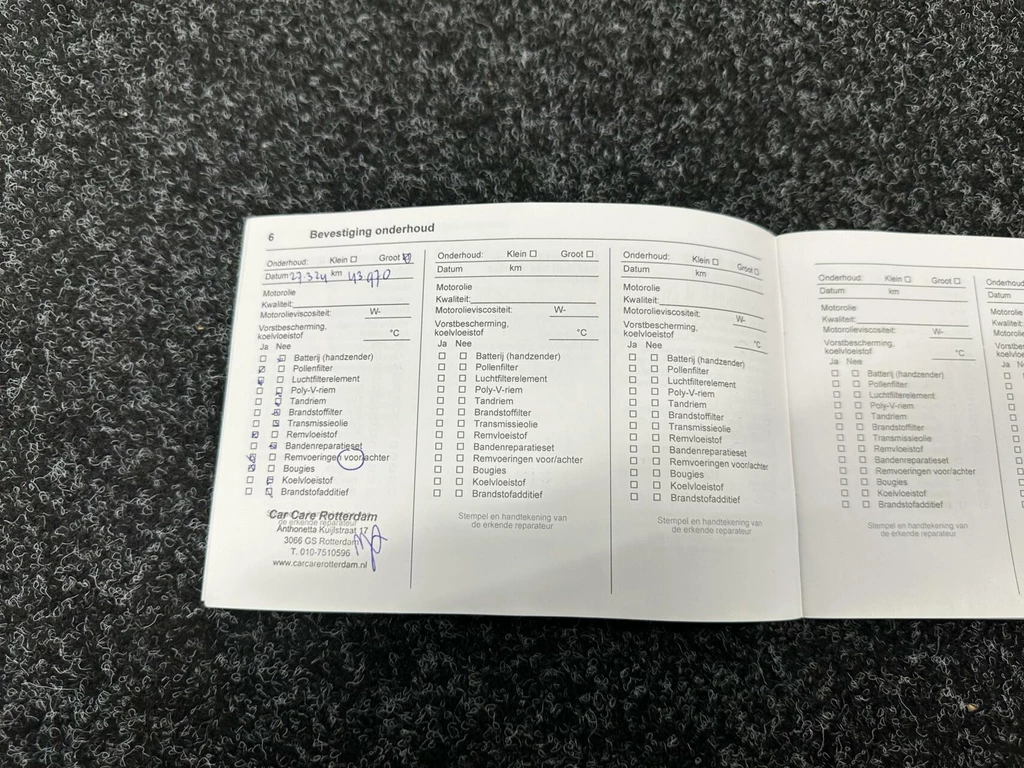 6 Bevestiging onderhoud
Onderhoud: Klein ☐ Groot ☒
Datum 27.3.24 km 43.970
Motorolie
Kwaliteit:
Motorolieviscositeit: W-
Vorstbescherming,
koelvloeistof °C
Ja Nee
Batterij (handzender)
Pollenfilter
Luchtfilterelement
Poly-V-riem
Tandriem
Brandstoffilter
Transmissieolie
Remvloeistof
Bandenreparatieset
Remvoeringen voor/achter
Bougies
Koelvloeistof
Brandstofadditief
Car Care Rotterdam
de erkende reparateur
Anthonetta Kuijlstraat 17
3066 GS Rotterdam
T. 010-7510596
www.carcarerotterdam.nl
Onderhoud: Klein ☐ Groot ☐
Datum km
Motorolie
Kwaliteit:
Motorolieviscositeit: W-
Vorstbescherming,
koelvloeistof °C
Ja Nee
Batterij (handzender)
Pollenfilter
Luchtfilterelement
Poly-V-riem
Tandriem
Brandstoffilter
Transmissieolie
Remvloeistof
Bandenreparatieset
Remvoeringen voor/achter
Bougies
Koelvloeistof
Brandstofadditief
Stempel en handtekening van
de erkende reparateur
Onderhoud: Klein ☐ Groot ☐
Datum km
Motorolie
Kwaliteit:
Motorolieviscositeit: W-
Vorstbescherming,
koelvloeistof °C
Ja Nee
Batterij (handzender)
Pollenfilter
Luchtfilterelement
Poly-V-riem
Tandriem
Brandstoffilter
Transmissieolie
Remvloeistof
Bandenreparatieset
Remvoeringen voor/achter
Bougies
Koelvloeistof
Brandstofadditief
Stempel en handtekening van
de erkende reparateur
Onderhoud: Klein ☐ Groot ☐
Datum km
Motorolie
Kwaliteit:
Motorolieviscositeit: W-
Vorstbescherming,
koelvloeistof °C
Ja Nee
Batterij (handzender)
Pollenfilter
Luchtfilterelement
Poly-V-riem
Tandriem
Brandstoffilter
Transmissieolie
Remvloeistof
Bandenreparatieset
Remvoeringen voor/achter
Bougies
Koelvloeistof
Brandstofadditief
Stempel en handtekening van
de erkende reparateur
Datum
Ja